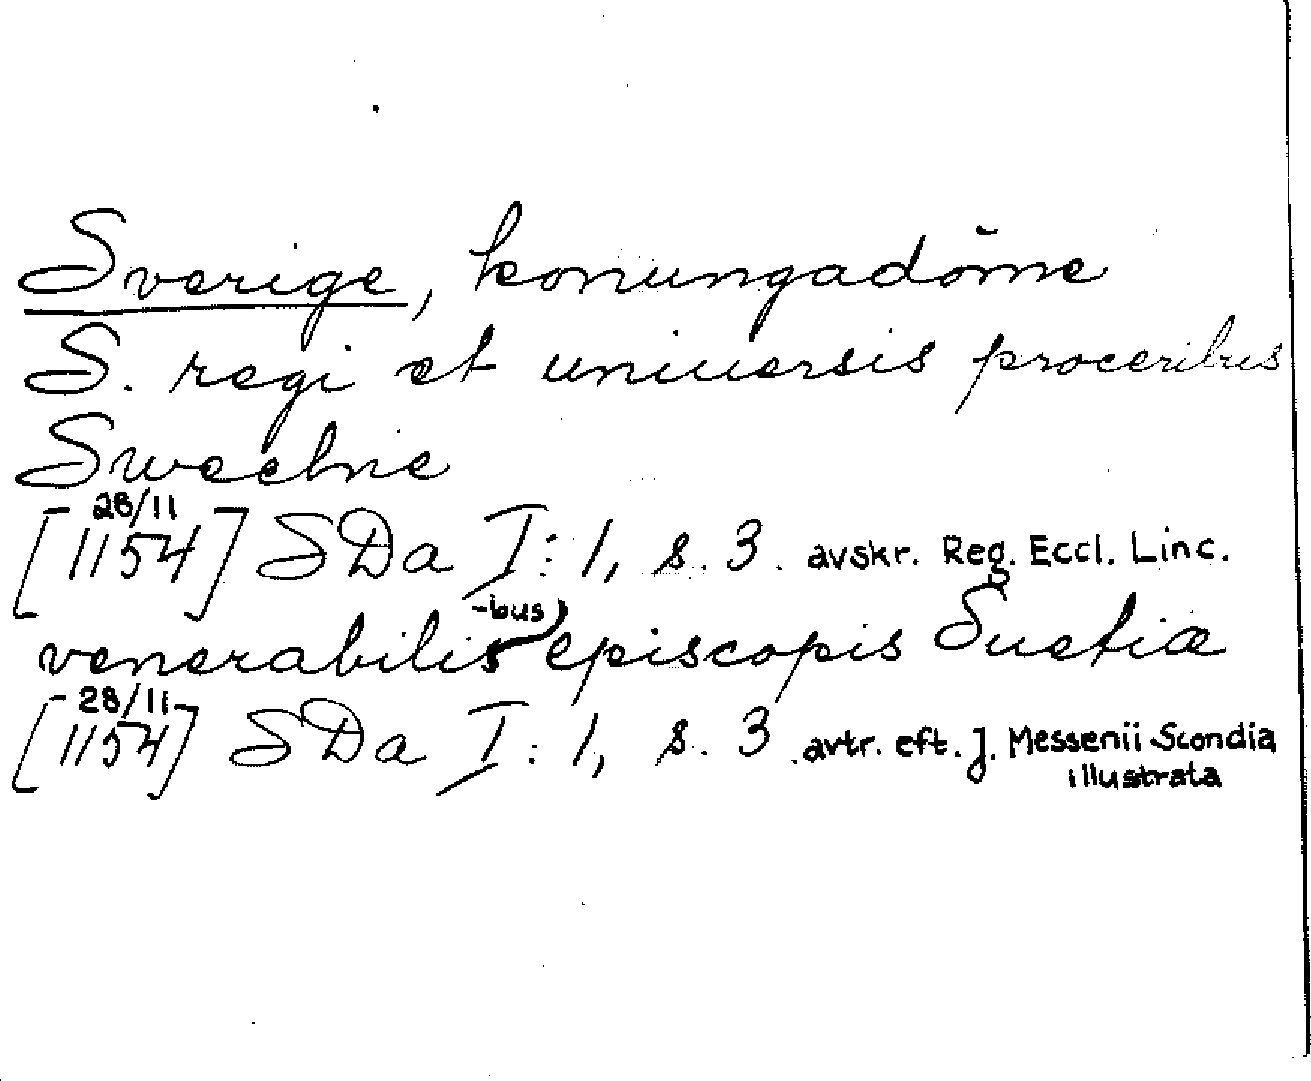 Sverige, konungadöme
S. regi et uniuersis proceribus
Sweehie
[28/11 1154] SDa I:1, s. 3. avskr. Reg. Eccl. Linc.
venerabilis -ibus) episcopis Suetiæ
[28/11 1154] SDa I:1, s. 3 avtr. eft. J. Messenii Scondia
illustrata